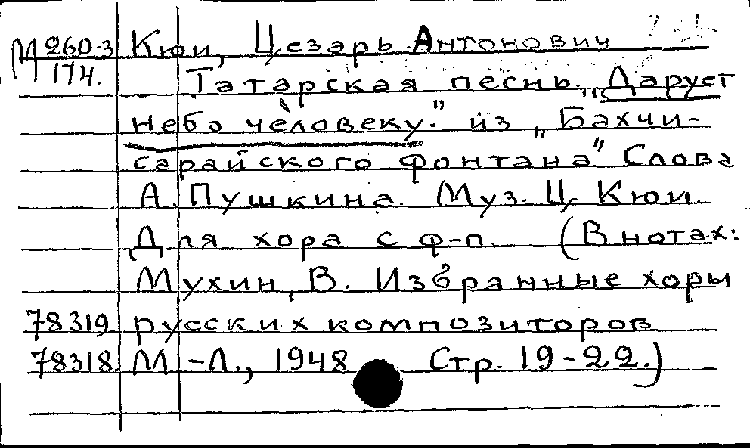 М 260-3 Кюи, Цезарь Антонович
174. Татарская песнь „Дарует
небо человеку." из „Бахчи-
сарайского фонтана" Слова
А. Пушкина. Муз. Ц. Кюи.
Для хора с ф-п. (В нотах:
Мухин, В. Избранные хоры
78319 русских композиторов
78318 М.-Л., 1948 Стр. 19-22.)